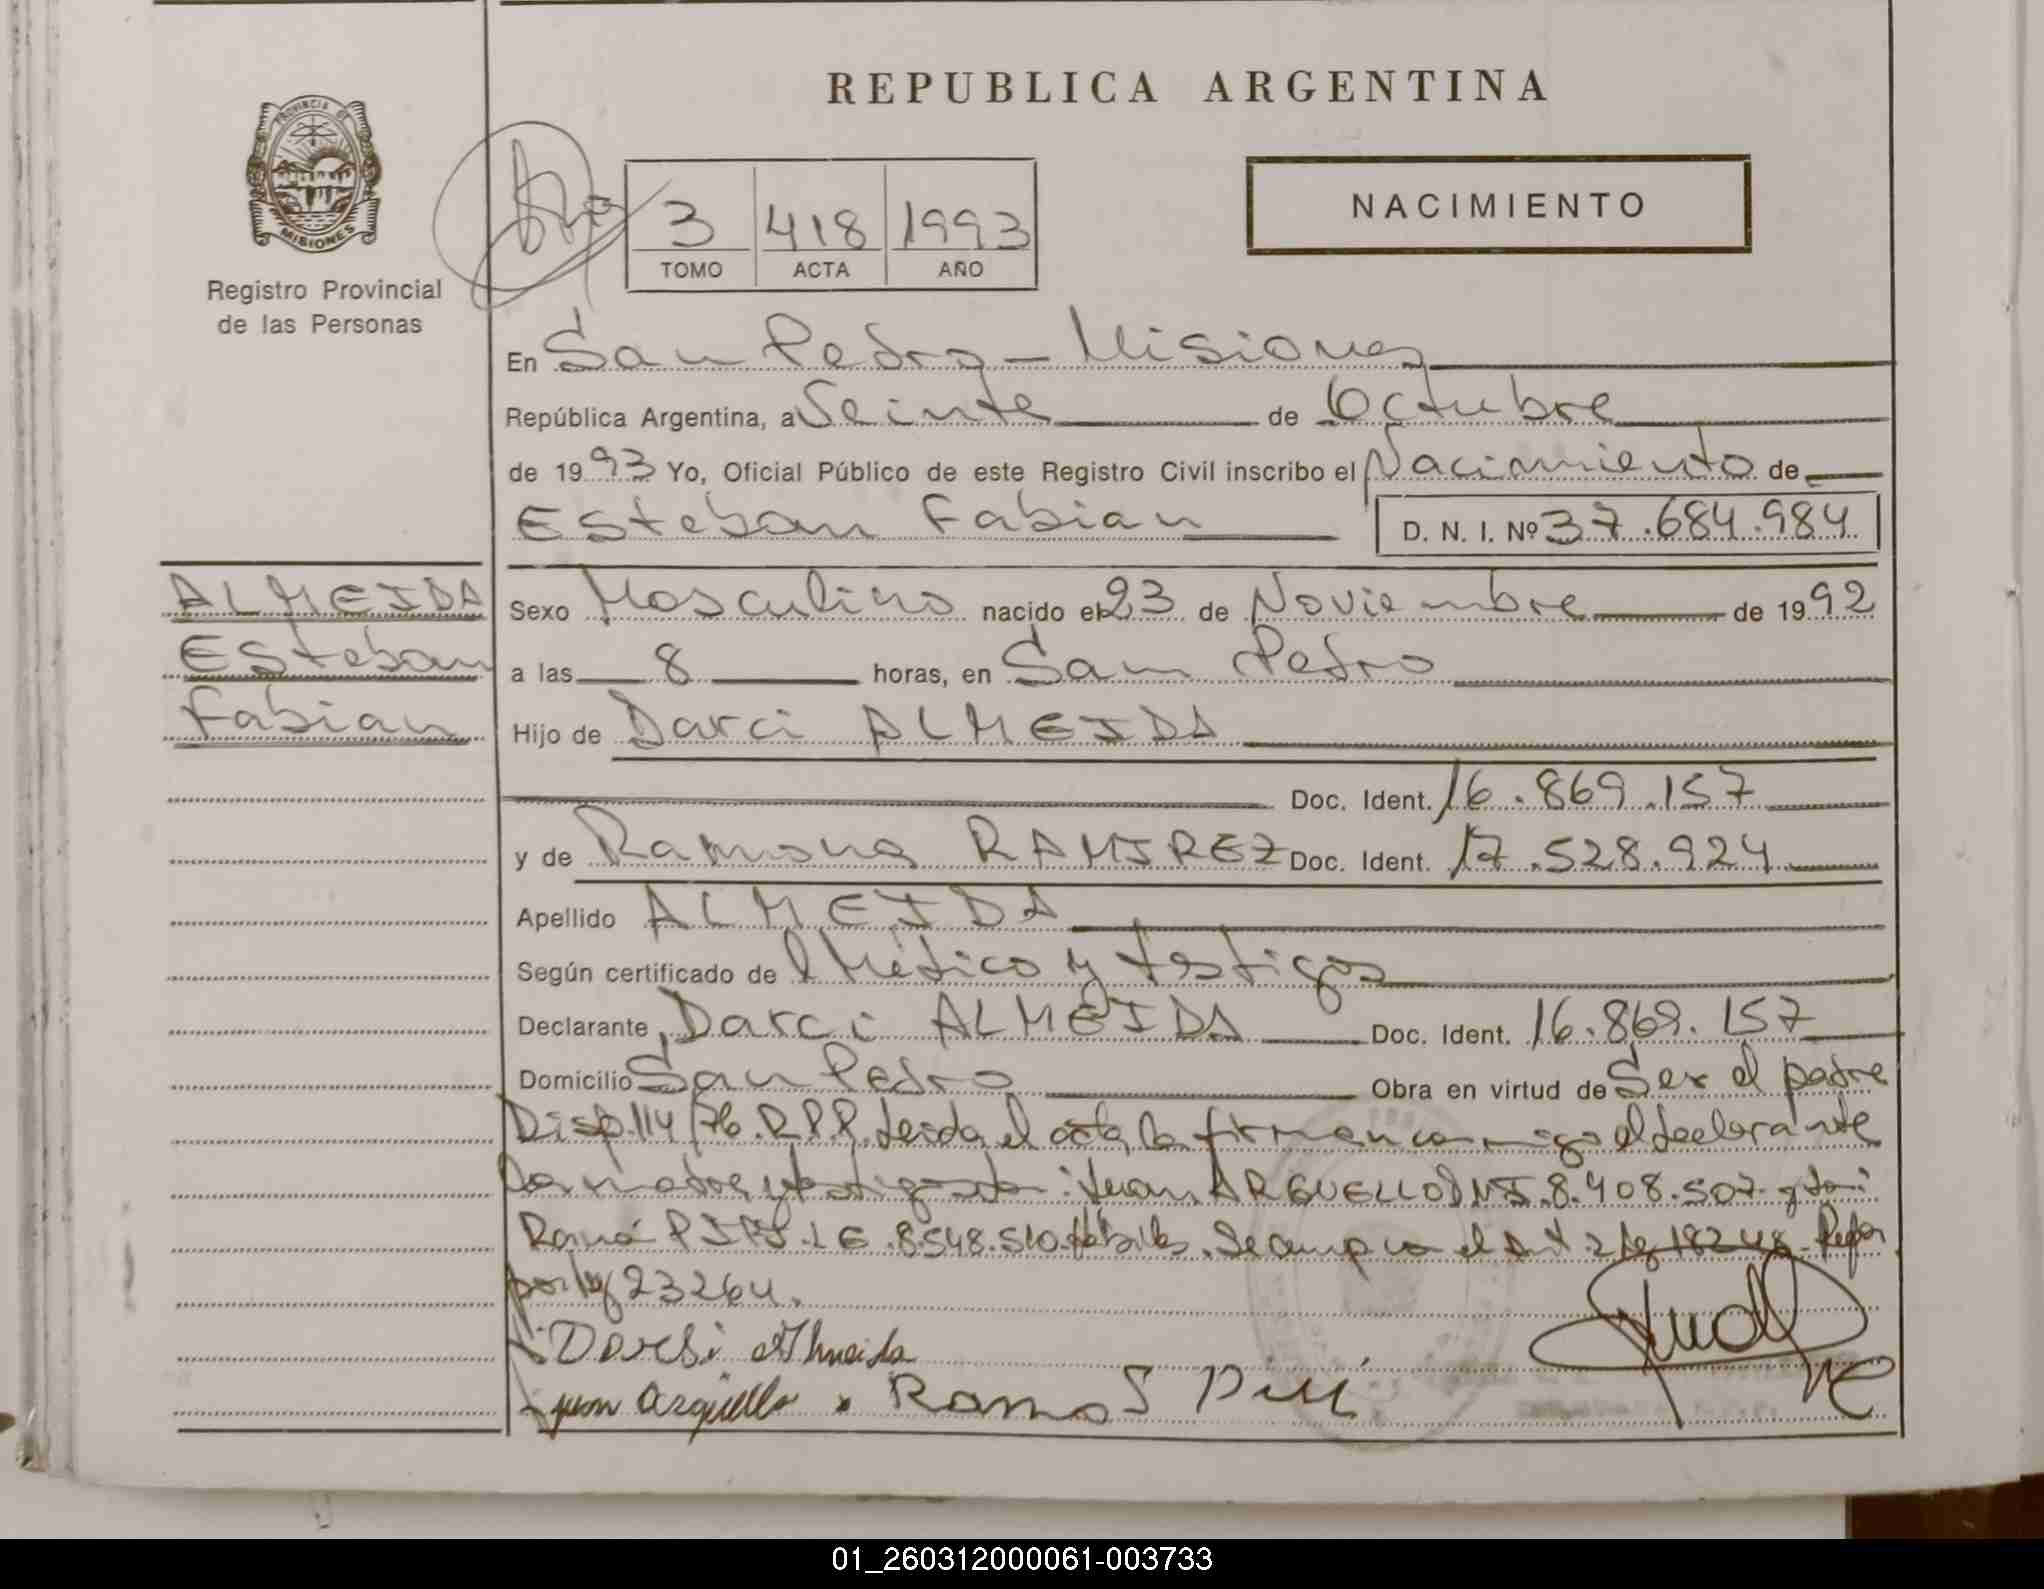 REPUBLICA ARGENTINA
PROVINCIA DE
MISIONES
Registro Provincial
de las Personas
3 418 1993
TOMO ACTA AÑO
NACIMIENTO
En San Pedro - Misiones
República Argentina, a Veinte de Octubre
de 1993 Yo, Oficial Público de este Registro Civil inscribo el Nacimiento de
Esteban Fabian D. N. I. Nº 37.684.984
ALMEIDA
Esteban
Fabian
Sexo Masculino nacido el 23 de Noviembre de 1992
a las 8 horas, en San Pedro
Hijo de Darci ALMEIDA
Doc. Ident. 16.869.157
y de Ramona RAMIREZ Doc. Ident. 17.528.924
Apellido ALMEIDA
Según certificado de l Médico y testigos
Declarante, Darci ALMEIDA Doc. Ident. 16.869.157
Domicilio San Pedro Obra en virtud de Ser el padre
Disp. 114/76. R.P.P. Leida el acta, la firman conmigo el declarante
la madre y testigos : Juan ARGUELLO DNI. 8.408.507 y
Ramó L E. 8.548.510. hábiles. Se cumpla el Art 2 Ley 18248
por ley 23264.
Darsi Almeida
juan Argüello Ramos
01_260312000061-003733